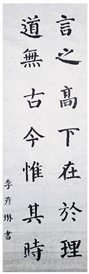 言之高下在於理
道無古今惟其時
李彦琳書